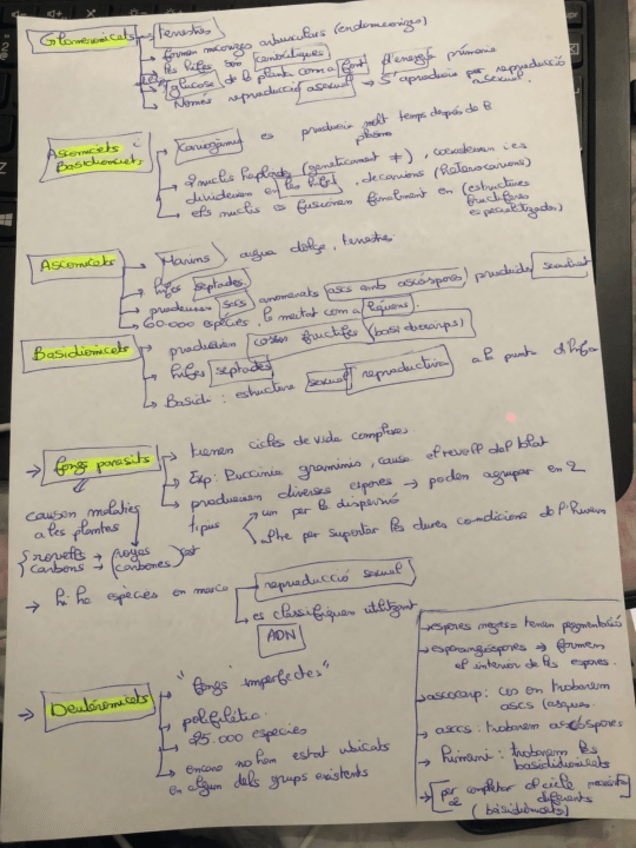 Glomeromicets → terrestres
→ formen micorizes arbusculars (endomicorizes)
→ les hifes són cenocítiques
→ glucosa de la planta com a font d'energia primària
→ Només reproducció asexual → s' reproducció asexual
Ascomicets i Basidiomicets
→ Cariogàmia es produeix molt temps després de la plasmo
→ 2 nuclis haploides (genèticament ≠), coexisteixen i es
divideixen en les hifes, dicarions (heterocarions)
→ els nuclis es fusionen finalment en (estructures
fructíferes
especialitzades)
Ascomicets → Marins, aigua dolça, terrestres
→ hifes septades
→ produeixen sacs anomenats ascs amb ascòspores produïts sexualment
→ 60.000 espècies, la meitat com a líquens.
Basidiomicets → produeixen cossos fructífers (basidiocarps)
→ hifes septades
→ Basidi : estructura sexual reproductiva a la punta d'hifa
→ fongs paràsits → tienen cicles de vida complexes.
→ Exp: Puccinia graminis, causa el rovell del blat
→ produeixen diverses espores → poden agrupar en 2
tipus
un per la dispersió
altre per suportar les dures condicions de l'hivern
causen malaties
a les plantes
{ rovells → (royas
carbons → (carbones) cast
→ hi ha espècies en manca → reproducció sexual
→ es classifiquen utilitzant
ADN
→ Deuteromicets → "fongs imperfectes"
→ polifilètic
→ 25.000 espècies
→ encara no han estat ubicats
en algun dels grups existents
→ espores negres = tenen pigmentació
→ esporangiòspores → formen
el interior de les espores.
→ ascocarp: cos on trobarem
ascs (asques.
→ ascs : trobarem ascòspores
→ himeni : trobarem les
basidiomicets
→ [per completar el cicle necessita
de diferents
(basidiomicets)